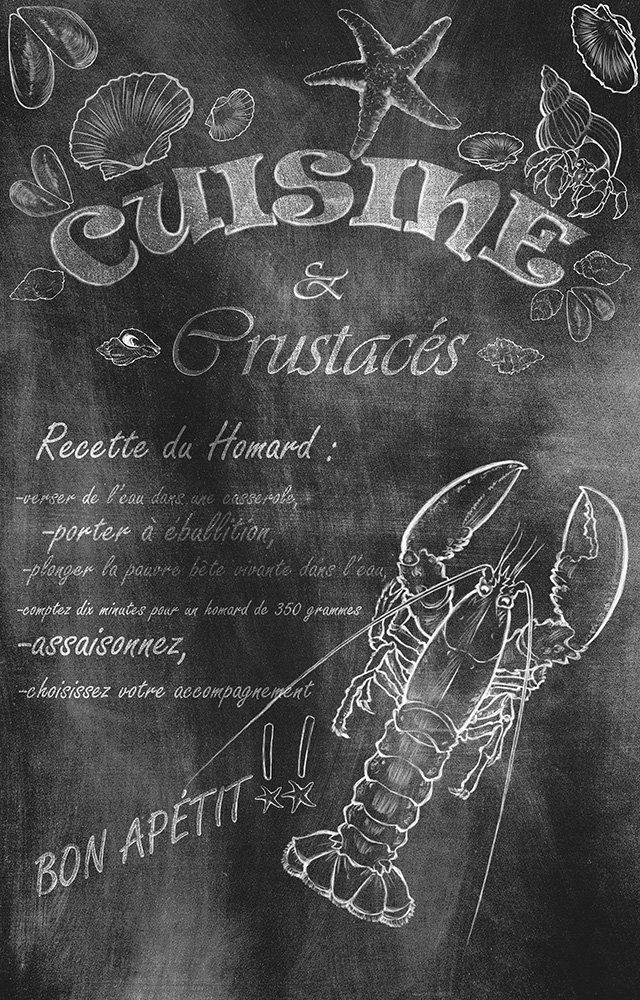 CUISINE
&
Crustacés
Recette du Homard :
-verser de l'eau dans une casserole,
-porter à ébullition,
-plonger la pauvre bête vivante dans l'eau,
-comptez dix minutes pour un homard de 350 grammes
-assaisonnez,
-choisissez votre accompagnement
BON APÉTIT !!